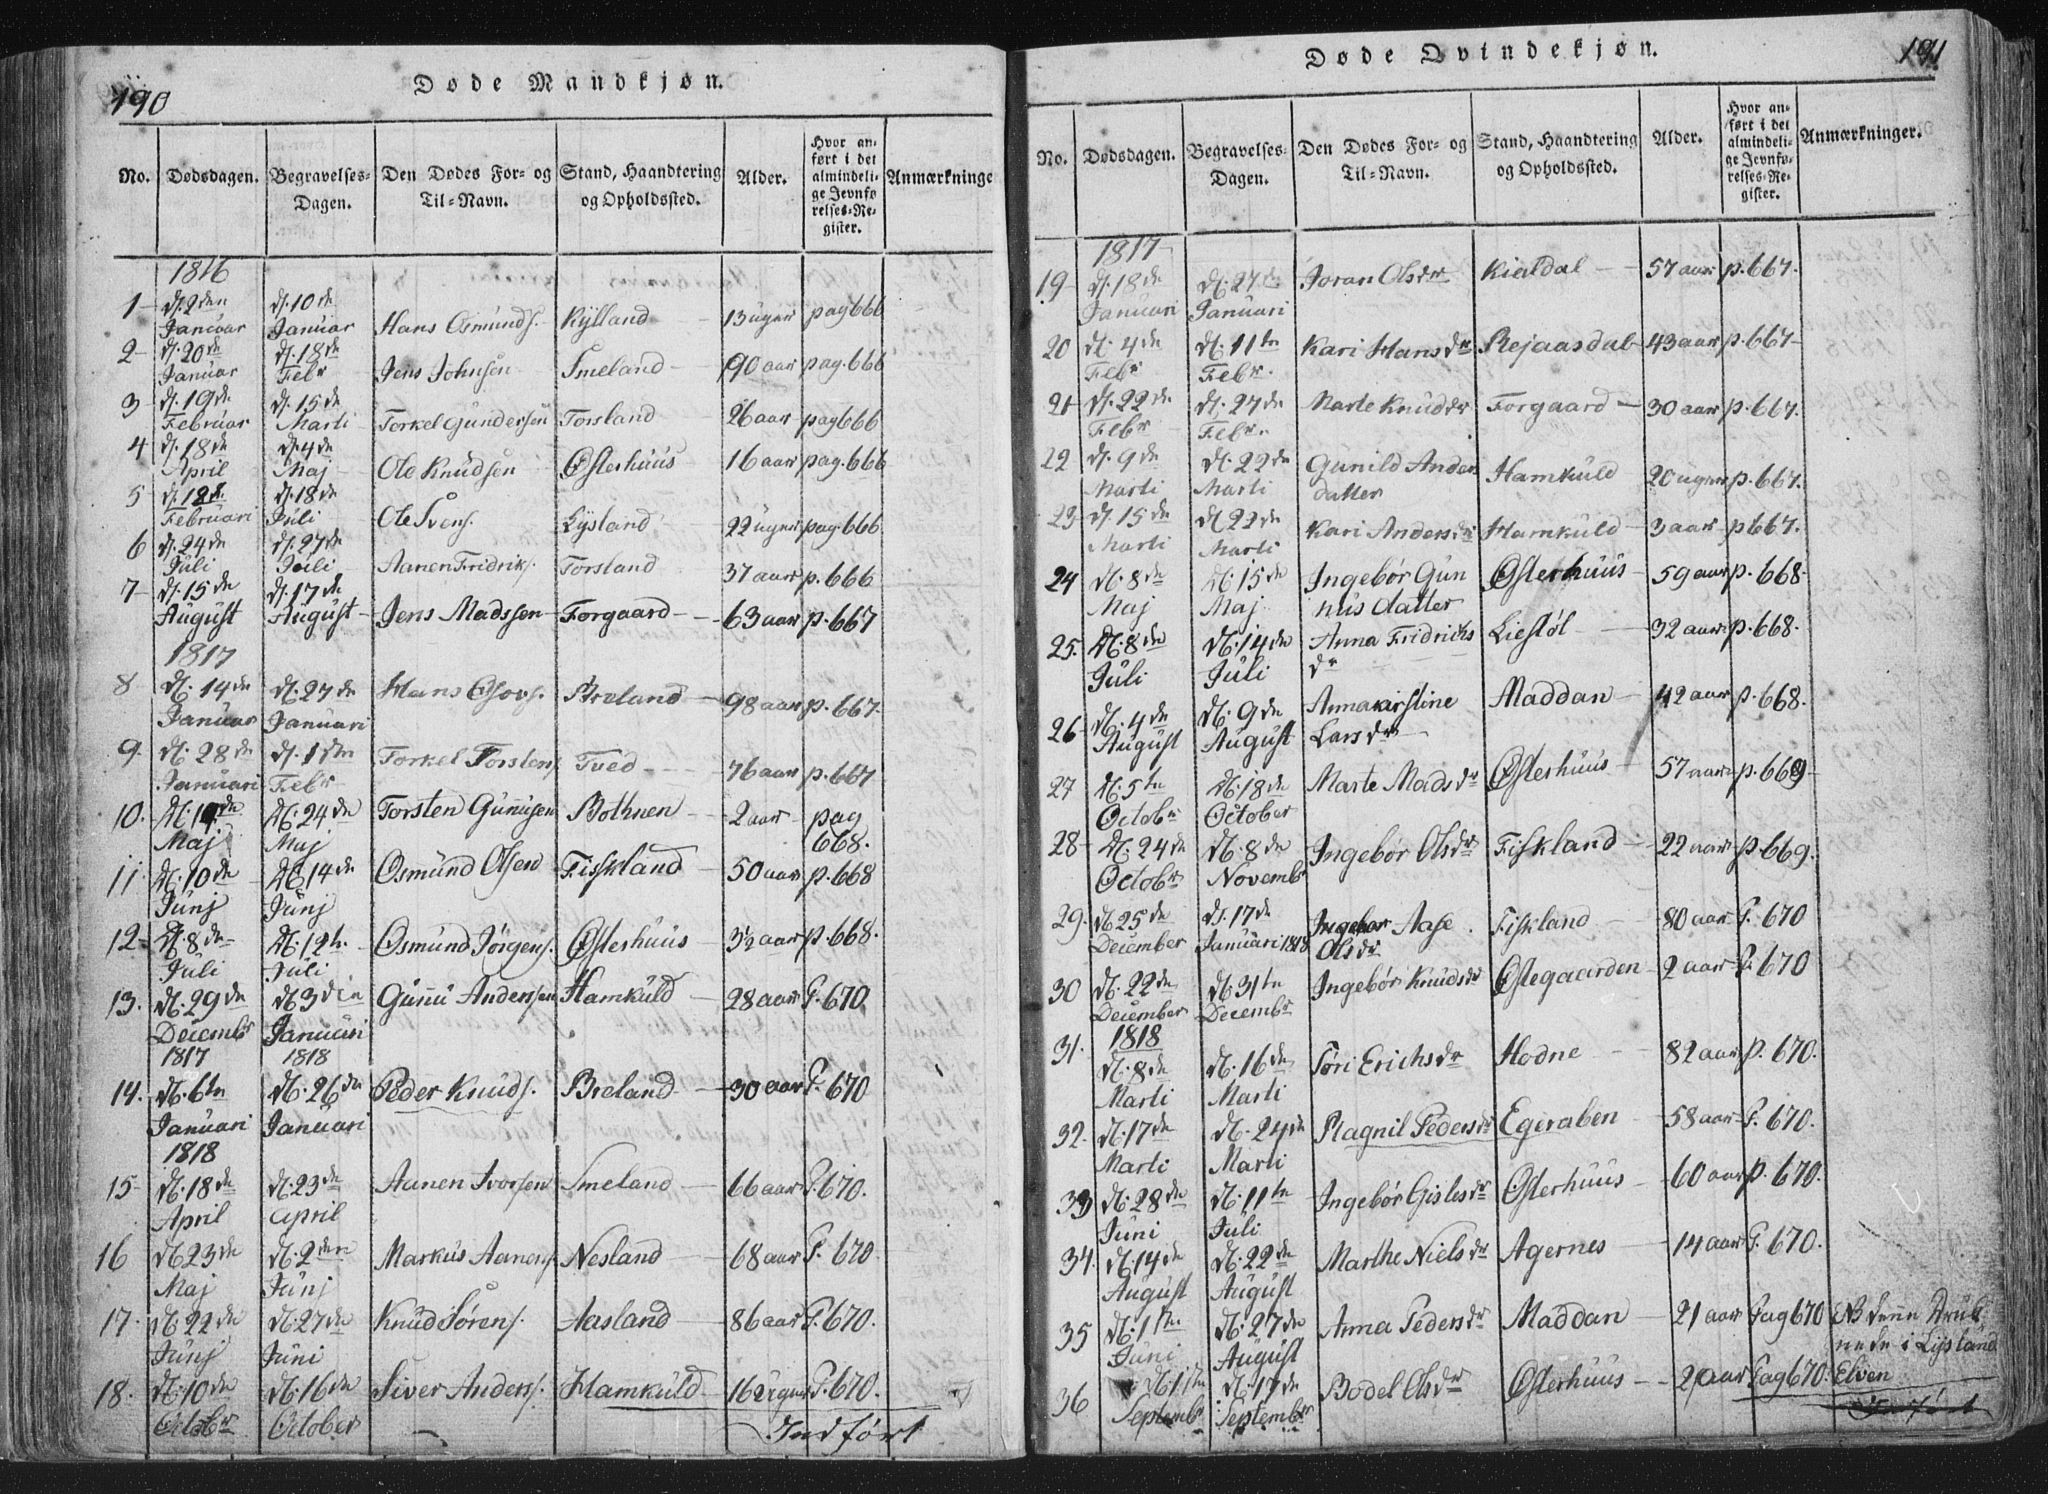 190
Døde Mandkjøn.
No. Dødsdagen. Begravelses-Dagen. Den Dødes For- og Til-Navn. Stand, Haandtering og Opholdssted. Alder. Hvor anført i det almindelige Jevnførelses-Register. Anmærkninge
1816
1 d. 2den Januar d. 10de Januar Hans Osmunds. Kylland 13 uger pag 666
2 d. 20de Januar d. 18de Febr Jens Johnsen Smeland 90 aar pag. 666
3 d. 19de Februar d. 15de Marti Torkel Gundersen Torsland 26 aar pag 666
4 d. 18de April d. 4de Maj Ole Knudsen Østerhuus 16 aar pag. 666
5 d. 12d. Februari d. 18de Juli Ole Svens. Lysland 22 uger pag. 666
6 d. 24de Juli d. 27de Juli Aanen Fridriks. Torsland 37 aar p. 666
7 d. 15de August d. 17de August Jens Madssen Forgaard 63 aar p. 667
1817
8 d. 14de Januar d. 27de Januari Hans Osovs. Breland 98 aar p. 667.
9. d. 28de Januari d. 1ste Febr Torkel Torstens. Tved 76 aar p. 667
10. Maj d. 24de Maj Torsten Gunusen Bothnen 2 aar pag 668.
11. d. 10de Junj d. 14de Junj Osmund Olsen Fiskland 50 aar p. 668
12 d. 8de Juli d. 12te Juli Osmund Jørgens. Østerhuus 3½ aar p. 668.
13. d. 29de Decembr 1817 d. 3die Januari 1818 Gunu Anderssen Hamkuld 28 aar P. 670
14. d. 6te Januari 1818 d. 26de Januari Peder Knuds. Breland 30 aar P. 670
15 d. 18de April d. 23de April Aanen Ivorsen Smeland 66 aar P. 670.
16 d. 23de Maj d. 2den Junj Markus Aanens. Nesland 68 aar P. 670.
17. d. 22de Junj d. 27de Juni Knud Sørens. Aasland 86 aar P. 670.
18. d. 10de Octobr d. 16de October Siver Anders. Hamkuld 16 uger P. 670.
Indført
191
Døde Qvindekjøn.
No. Dødsdagen. Begravelses-Dagen. Den Dødes For- og Til-Navn. Stand, Haandtering og Opholdssted. Alder. Hvor anført i det almindelige Jevnførelses-Register. Anmærkninger.
1817
19 d. 18de Januari d. 27de Januari Joran Olsdr Kieldal 57 aar p. 667.
20 d. 4de Febr d. 11te Febr. Kari Hansdr Rejaasdal 43 aar p. 667
21 d. 22de Febr d. 27de Febr. Marte Knudsdr Forgaard 30 aar p. 667.
22 d. 9de Marti d. 22de Marti Gunild Anders datter Hamkuld 20 uger p. 667.
23 d. 15de Marti d. 22de Marti Kari Andersdr Hamkuld 3 aar p 667.
24 d. 8de Maj d. 15de Maj Ingebør Gunnus datter Østerhuus 59 aar p. 668
25. d. 8de Juli d. 14de Juli Anna Fridrichs dr Liestøl 32 aar p. 668.
26 d. 4de August d. 9de August Annakirstine Larsdr Maddan 42 aar p. 668.
27 d. 5te Octobr d. 18de October Marte Madsdr Østerhuus 57 aar p. 669
28 d. 24de Octobr d. 8de Novembr Ingebør Olsdr Fiskland 22 aar p. 669.
29. d. 25de December d. 17de Januari 1818 Ingebor Aase Olsdr Fiskland 80 aar P. 670
30 d. 22de December d. 31te Decembr Ingebør Knudsdr Østegaarden 2 aar P. 670
1818
31. d. 8de Marti d. 16de Marti Tøri Erichsdr Hodne 82 aar P. 670.
32. d. 17de Marti d. 24de Marti Ragnil Pedersdr Egeraben 58 aar P. 670.
33 d. 28de Juni d. 11te Juli Ingebør Gislesdr Østerhuus 60 aar p. 670.
34. d. 14de August d. 22de August Marthe Nielsdr Agernes 14 aar P. 670.
35 d. 1ste Juni d. 27de August Anna Pedersdr Maddan 21 aar Pag 670 NB denne Druknede i Lyslands Elven
36 d. 11te Septembr d. 17de Septembr Bodel Olsdr Østerhuus 2 aar Pag 670.
Indført